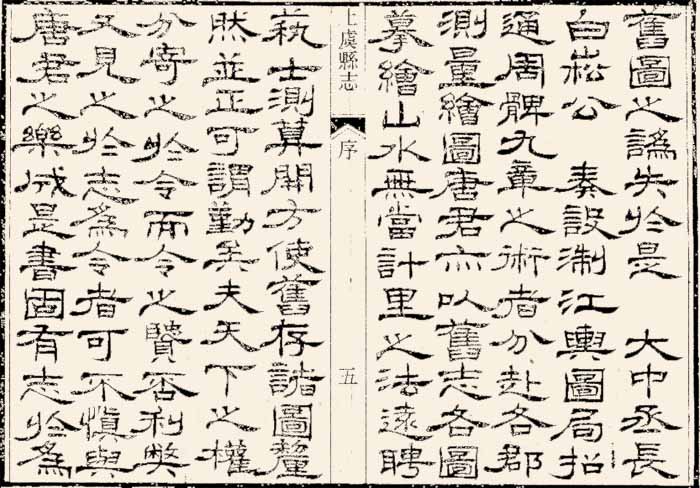 舊圖之譌失於是　大中丞長
白崧公　奏設淛江輿圖局招
通周髀九章之術者分赴各郡
測量繪圖唐君亦以舊志各圖
摹繪山水無當計里之法遠聘
上虞縣志　序　五
蓺士測算開方使舊存諸圖釐
然並正可謂勤矣夫天下之權
分寄之於令而令之賢否利弊
又見之於志為令者可不慎與
唐君之樂成是書固有志於為